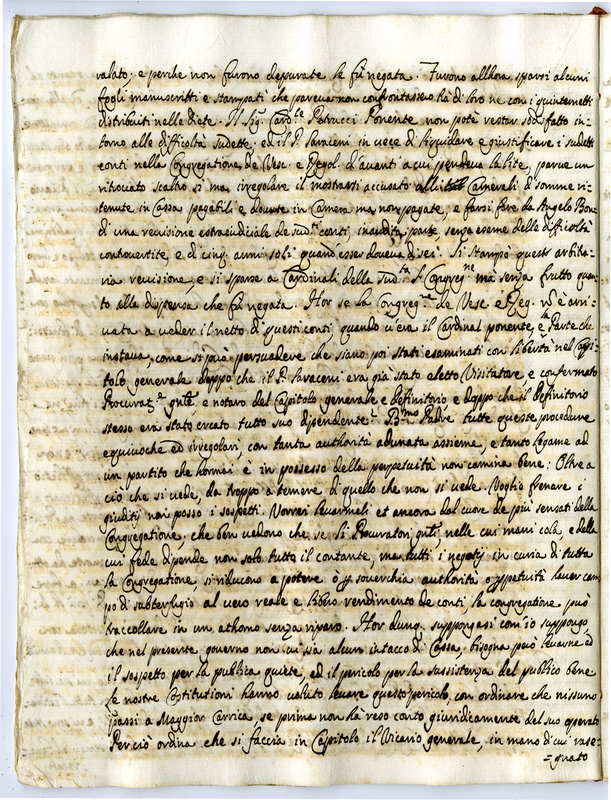 valato; e perche non furono depurate le fù negata. Furono allhora sparsi alcuni
fogli manuscritti e stampati che pareva non confrontassero hà di loro ne con i quinternetti
distribuiti nelle Diete. Il Sig. Card.le Petrucci Ponente non potè restar sodisfatto in=
torno alle difficoltà sudette, ed il P. Saraceni in vece di liquidare e giustificare i sudetti
conti nella Congregatione de Vesc. e Regol. d'avanti a cui pendeva la lite, parve un
ritrovato scaltro sì ma irregolare il mostrarsi accusato alli Camerali di somme ri=
tenute in Cassa pagabili e dovute in Camera ma non pagate, e farsi fare da Angelo Bon=
di una revisione estragiudiciale de sud.ti conti, inaudita parte, senza esame delle difficoltà
controvertite, e di cinq. anni soli quand'esser doveva di sei. Si stampò questa arbitra=
ria revisione, e si sparse a Cardinali della sud.ta S. Congreg.ne mà senza frutto quan=
to alla dispensa che fù negata. Hor se la Congreg.ne de Vesc. e Reg. nō è arri=
vata a veder il netto di questi conti quando v'era il Cardinal ponente, e la Parte che
instava, come si può persuadere che siano poi stati esaminati con libertà nel Capi=
tolo generale doppo che il P. Saraceni era già stato eletto Visitatore e confermato
Procurat.re gnle e notaro del Capitolo generale e definitorio e doppo che il Definitorio
stesso era stato creato tutto suo dipendente? B.mo Padre tutte queste procedure
equivoche ed irregolari, con tanta authorità adunata assieme, e tanto legame ad
un partito che hormai è in possesso della perpetuità non camina bene: Oltre a
ciò che si vede, dà troppo a temere di quello che non si vede. Voglio frenare i
giuditij non posso i sospetti. Vorrei levarmeli et ancora dal cuore de più sensati della
Congregatione, che ben vedono che, se li Procuratori gnli, nelle cui mani cola, e della
cui fede dipende non solo tutto il contante, ma tutti i negotij in curia di tutta
la Congregatione, si riducono a potere o p soverchia authorità o p ppetuità haver cam
po di subterfugio al vero reale e libero rendimento de conti la congregatione può
traccollare in un athomo senza riparo. Hor dunq. suppongasi com'io suppongo,
che nel presente governo non vi sia alcun intacco di Cassa, bisogna però levarne ed
il sospetto per la publica quiete, ed il pericolo per la sussistenza del publico bene
Le nostre Costitutioni hanno voluto levare questo pericolo, con ordinare che nissuno
passi a Maggior Carrica, se prima non hà reso conto giuridicamente del suo operato
Perciò ordina che si faccia in Capitolo il Vicario generale, in mano di cui rase=
=gnato